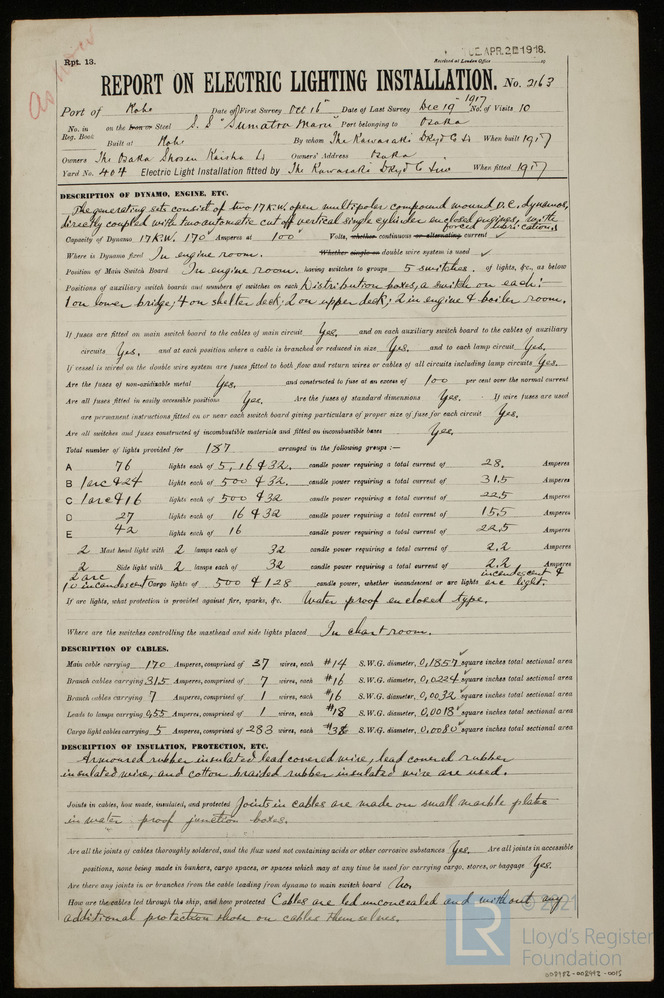 as now
Rpt. 13.
TUE. APR. 2 1918.
Received at London Office
REPORT ON ELECTRIC LIGHTING INSTALLATION. No. 2163
Port of Kobe Date of First Survey Oct 16th Date of Last Survey Dec 19th 1917 No. of Visits 10
No. in Reg. Book on the Iron or Steel S.S "Sumatra Maru" Port belonging to Osaka
Built at Kobe By whom The Kawasaki Dkyd Co Ld When built 1917
Owners The Osaka Shosen Kaisha Ld Owners' Address Osaka
Yard No. 404 Electric Light Installation fitted by The Kawasaki Dkyd Co Lim When fitted 1917
DESCRIPTION OF DYNAMO, ENGINE, ETC.
The generating sets consist of two 17 K.W. open multipolar compound wound D.C. dynamos,
directly coupled with two automatic cut off vertical single cylinder enclosed engines, with forced lubrications
Capacity of Dynamo 17 K.W. 170 Amperes at 100 Volts, whether continuous or alternating current ✓
Where is Dynamo fixed In engine room. Whether single or double wire system is used ✓
Position of Main Switch Board In engine room. having switches to groups 5 switches. of lights, &c., as below
Positions of auxiliary switch boards and numbers of switches on each Distribution boxes, a switch on each:-
1 on lower bridge; 4 on shelter deck; 2 on upper deck; 2 in engine & boiler room.
If fuses are fitted on main switch board to the cables of main circuit Yes. and on each auxiliary switch board to the cables of auxiliary
circuits Yes. and at each position where a cable is branched or reduced in size Yes. and to each lamp circuit Yes.
If vessel is wired on the double wire system are fuses fitted to both flow and return wires or cables of all circuits including lamp circuits Yes.
Are the fuses of non-oxidizable metal Yes. and constructed to fuse at an excess of 100 per cent over the normal current
Are all fuses fitted in easily accessible positions Yes. Are the fuses of standard dimensions Yes. If wire fuses are used
are permanent instructions fitted on or near each switch board giving particulars of proper size of fuse for each circuit Yes.
Are all switches and fuses constructed of incombustible materials and fitted on incombustible bases Yes.
Total number of lights provided for 187 arranged in the following groups :—
A 76 lights each of 5, 16 & 32. candle power requiring a total current of 28. Amperes
B 1 arc & 24 lights each of 500 & 32. candle power requiring a total current of 31.5 Amperes
C 1 arc & 16 lights each of 500 & 32 candle power requiring a total current of 22.5 Amperes
D 27 lights each of 16 & 32 candle power requiring a total current of 15.5 Amperes
E 42 lights each of 16 candle power requiring a total current of 22.5 Amperes
2 Mast head light with 2 lamps each of 32 candle power requiring a total current of 2.2 Amperes
2 Side light with 2 lamps each of 32 candle power requiring a total current of 2.2 Amperes
2 arc 10 incandescent Cargo lights of 500 & 128 candle power, whether incandescent or arc lights incandescent & arc light.
If arc lights, what protection is provided against fire, sparks, &c. Water proof enclosed type.
Where are the switches controlling the masthead and side lights placed In chart room.
DESCRIPTION OF CABLES.
Main cable carrying 170 Amperes, comprised of 37 wires, each #14 S.W.G. diameter, 0.1857 square inches total sectional area
Branch cables carrying 31.5 Amperes, comprised of 7 wires, each #16 S.W.G. diameter, 0.0224 square inches total sectional area
Branch cables carrying 7 Amperes, comprised of 1 wires, each #16 S.W.G. diameter, 0.0032 square inches total sectional area
Leads to lamps carrying 0.55 Amperes, comprised of 1 wires, each #18 S.W.G. diameter, 0.0018 square inches total sectional area
Cargo light cables carrying 5 Amperes, comprised of 283 wires, each #38 S.W.G. diameter, 0.0080 square inches total sectional area
DESCRIPTION OF INSULATION, PROTECTION, ETC.
Armoured rubber insulated lead covered wire, lead covered rubber
insulated wire, and cotton braided rubber insulated wire are used.
Joints in cables, how made, insulated, and protected Joints in cables are made on small marble plates
in water proof junction boxes.
Are all the joints of cables thoroughly soldered, and the flux used not containing acids or other corrosive substances Yes. Are all joints in accessible
positions, none being made in bunkers, cargo spaces, or spaces which may at any time be used for carrying cargo, stores, or baggage Yes.
Are there any joints in or branches from the cable leading from dynamo to main switch board No.
How are the cables led through the ship, and how protected Cables are led unconcealed and without any
additional protection those on cables themselves.
© 2021
LR
Lloyd's Register
Foundation
008982-008992-0015